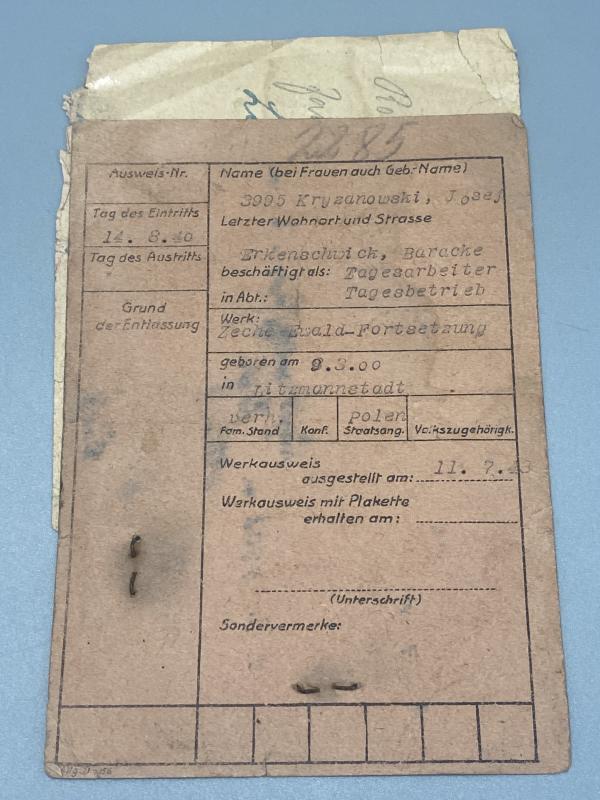 2885
Ausweis-Nr.
Tag des Eintritts
14. 8.40
Tag des Austritts
Grund
der Entlassung
Name (bei Frauen auch Geb.-Name)
3995 Kryzanowski, Josef
Letzter Wohnort und Strasse
Erkenschwick, Baracke
beschäftigt als: Tagesarbeiter
in Abt.: Tagesbetrieb
Werk:
Zeche Ewald-Fortsetzung
geboren am 9.3.00
in Litzmannstadt
verh. polen
Fam. Stand Konf. Staatsang. Volkszugehörigk.
Werkausweis
ausgestellt am: 11. 7.43
Werkausweis mit Plakette
erhalten am:
(Unterschrift)
Sondervermerke: